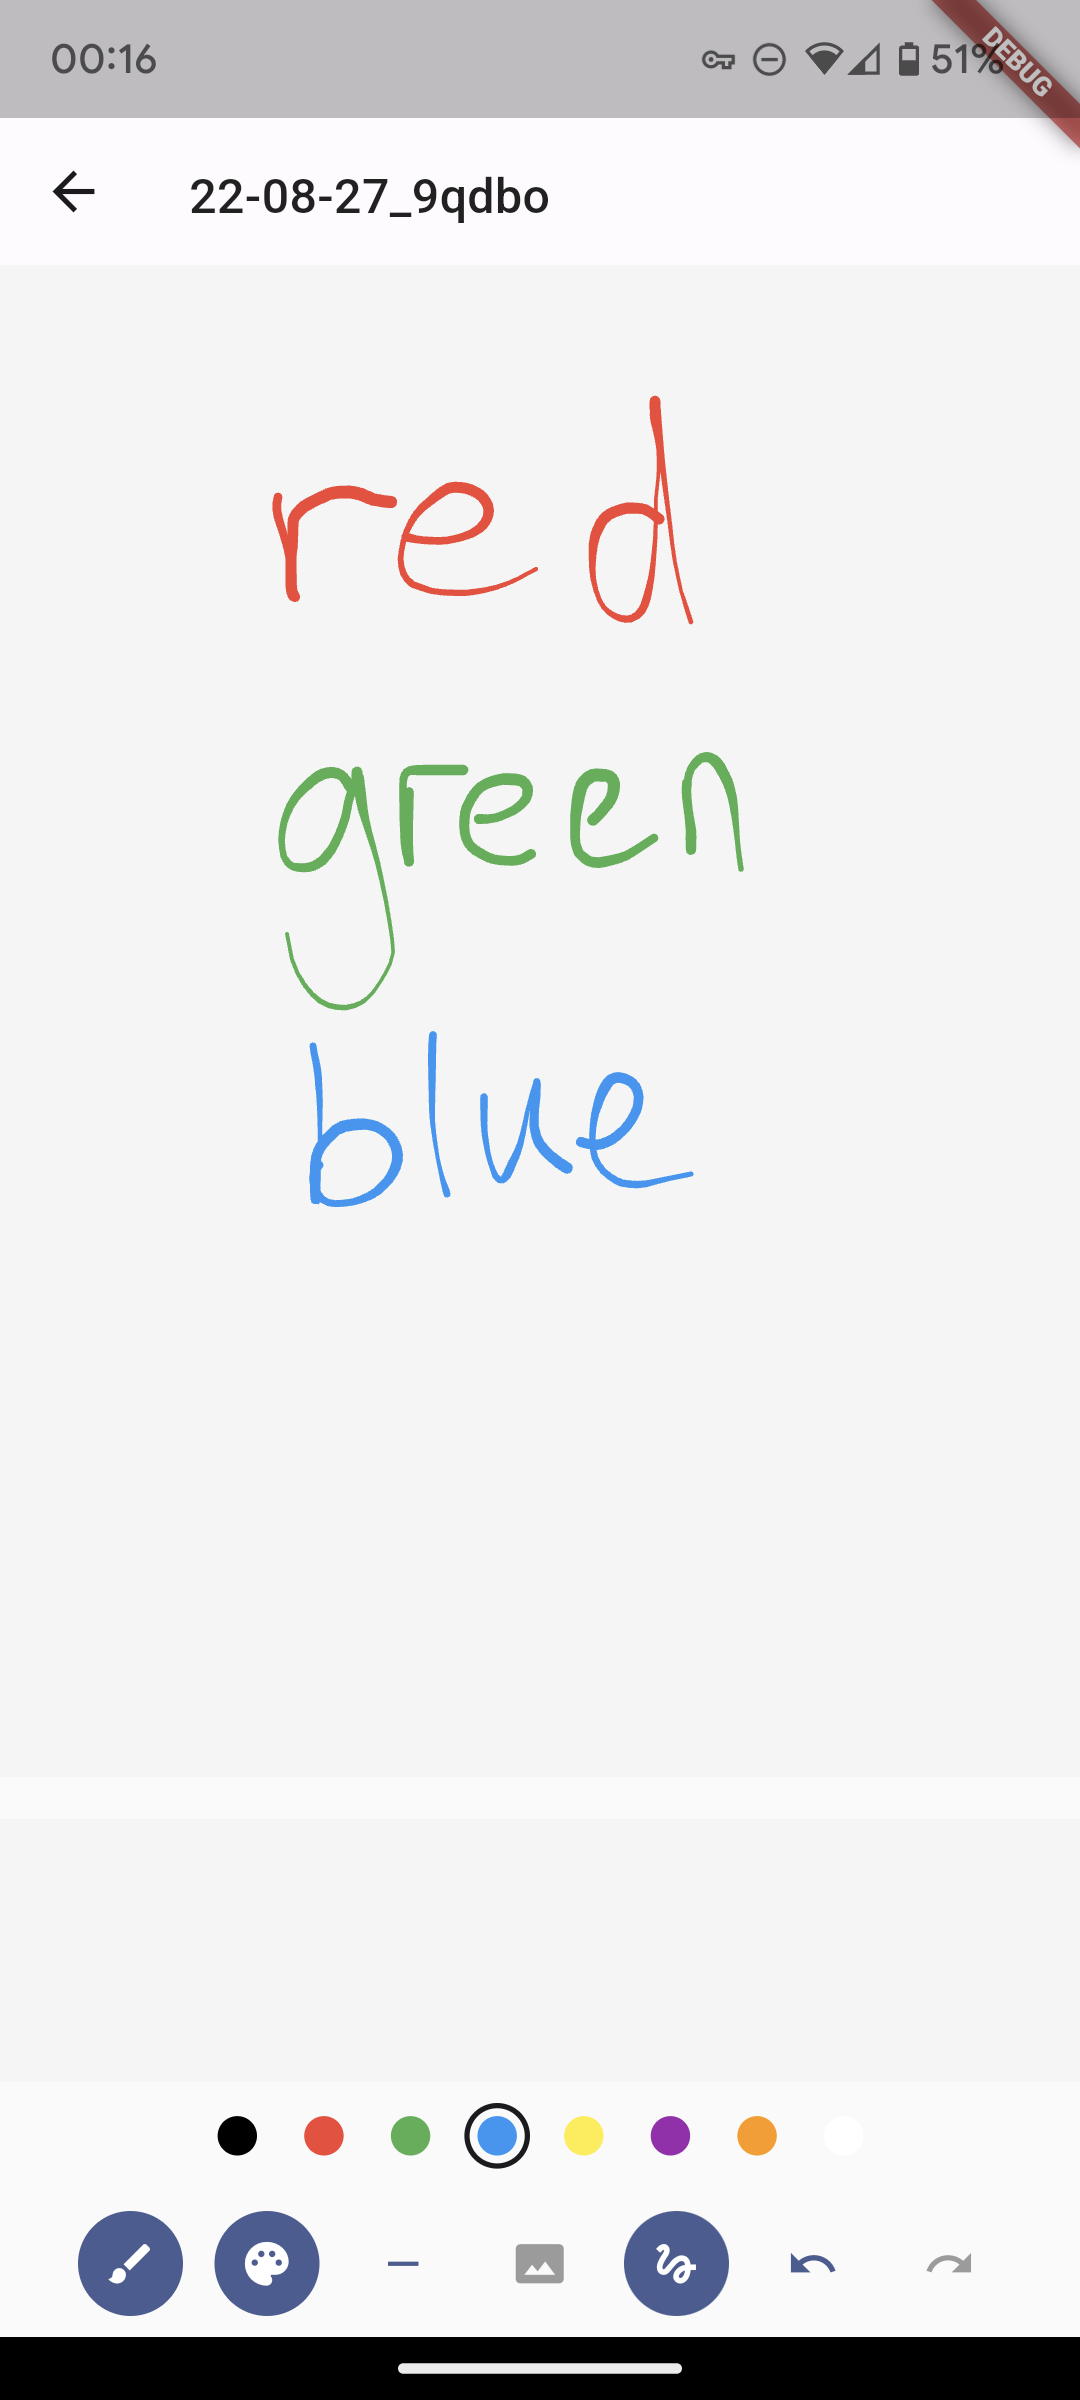 00:16 51%
DEBUG
22-08-27_9qdbo
red
green
blue